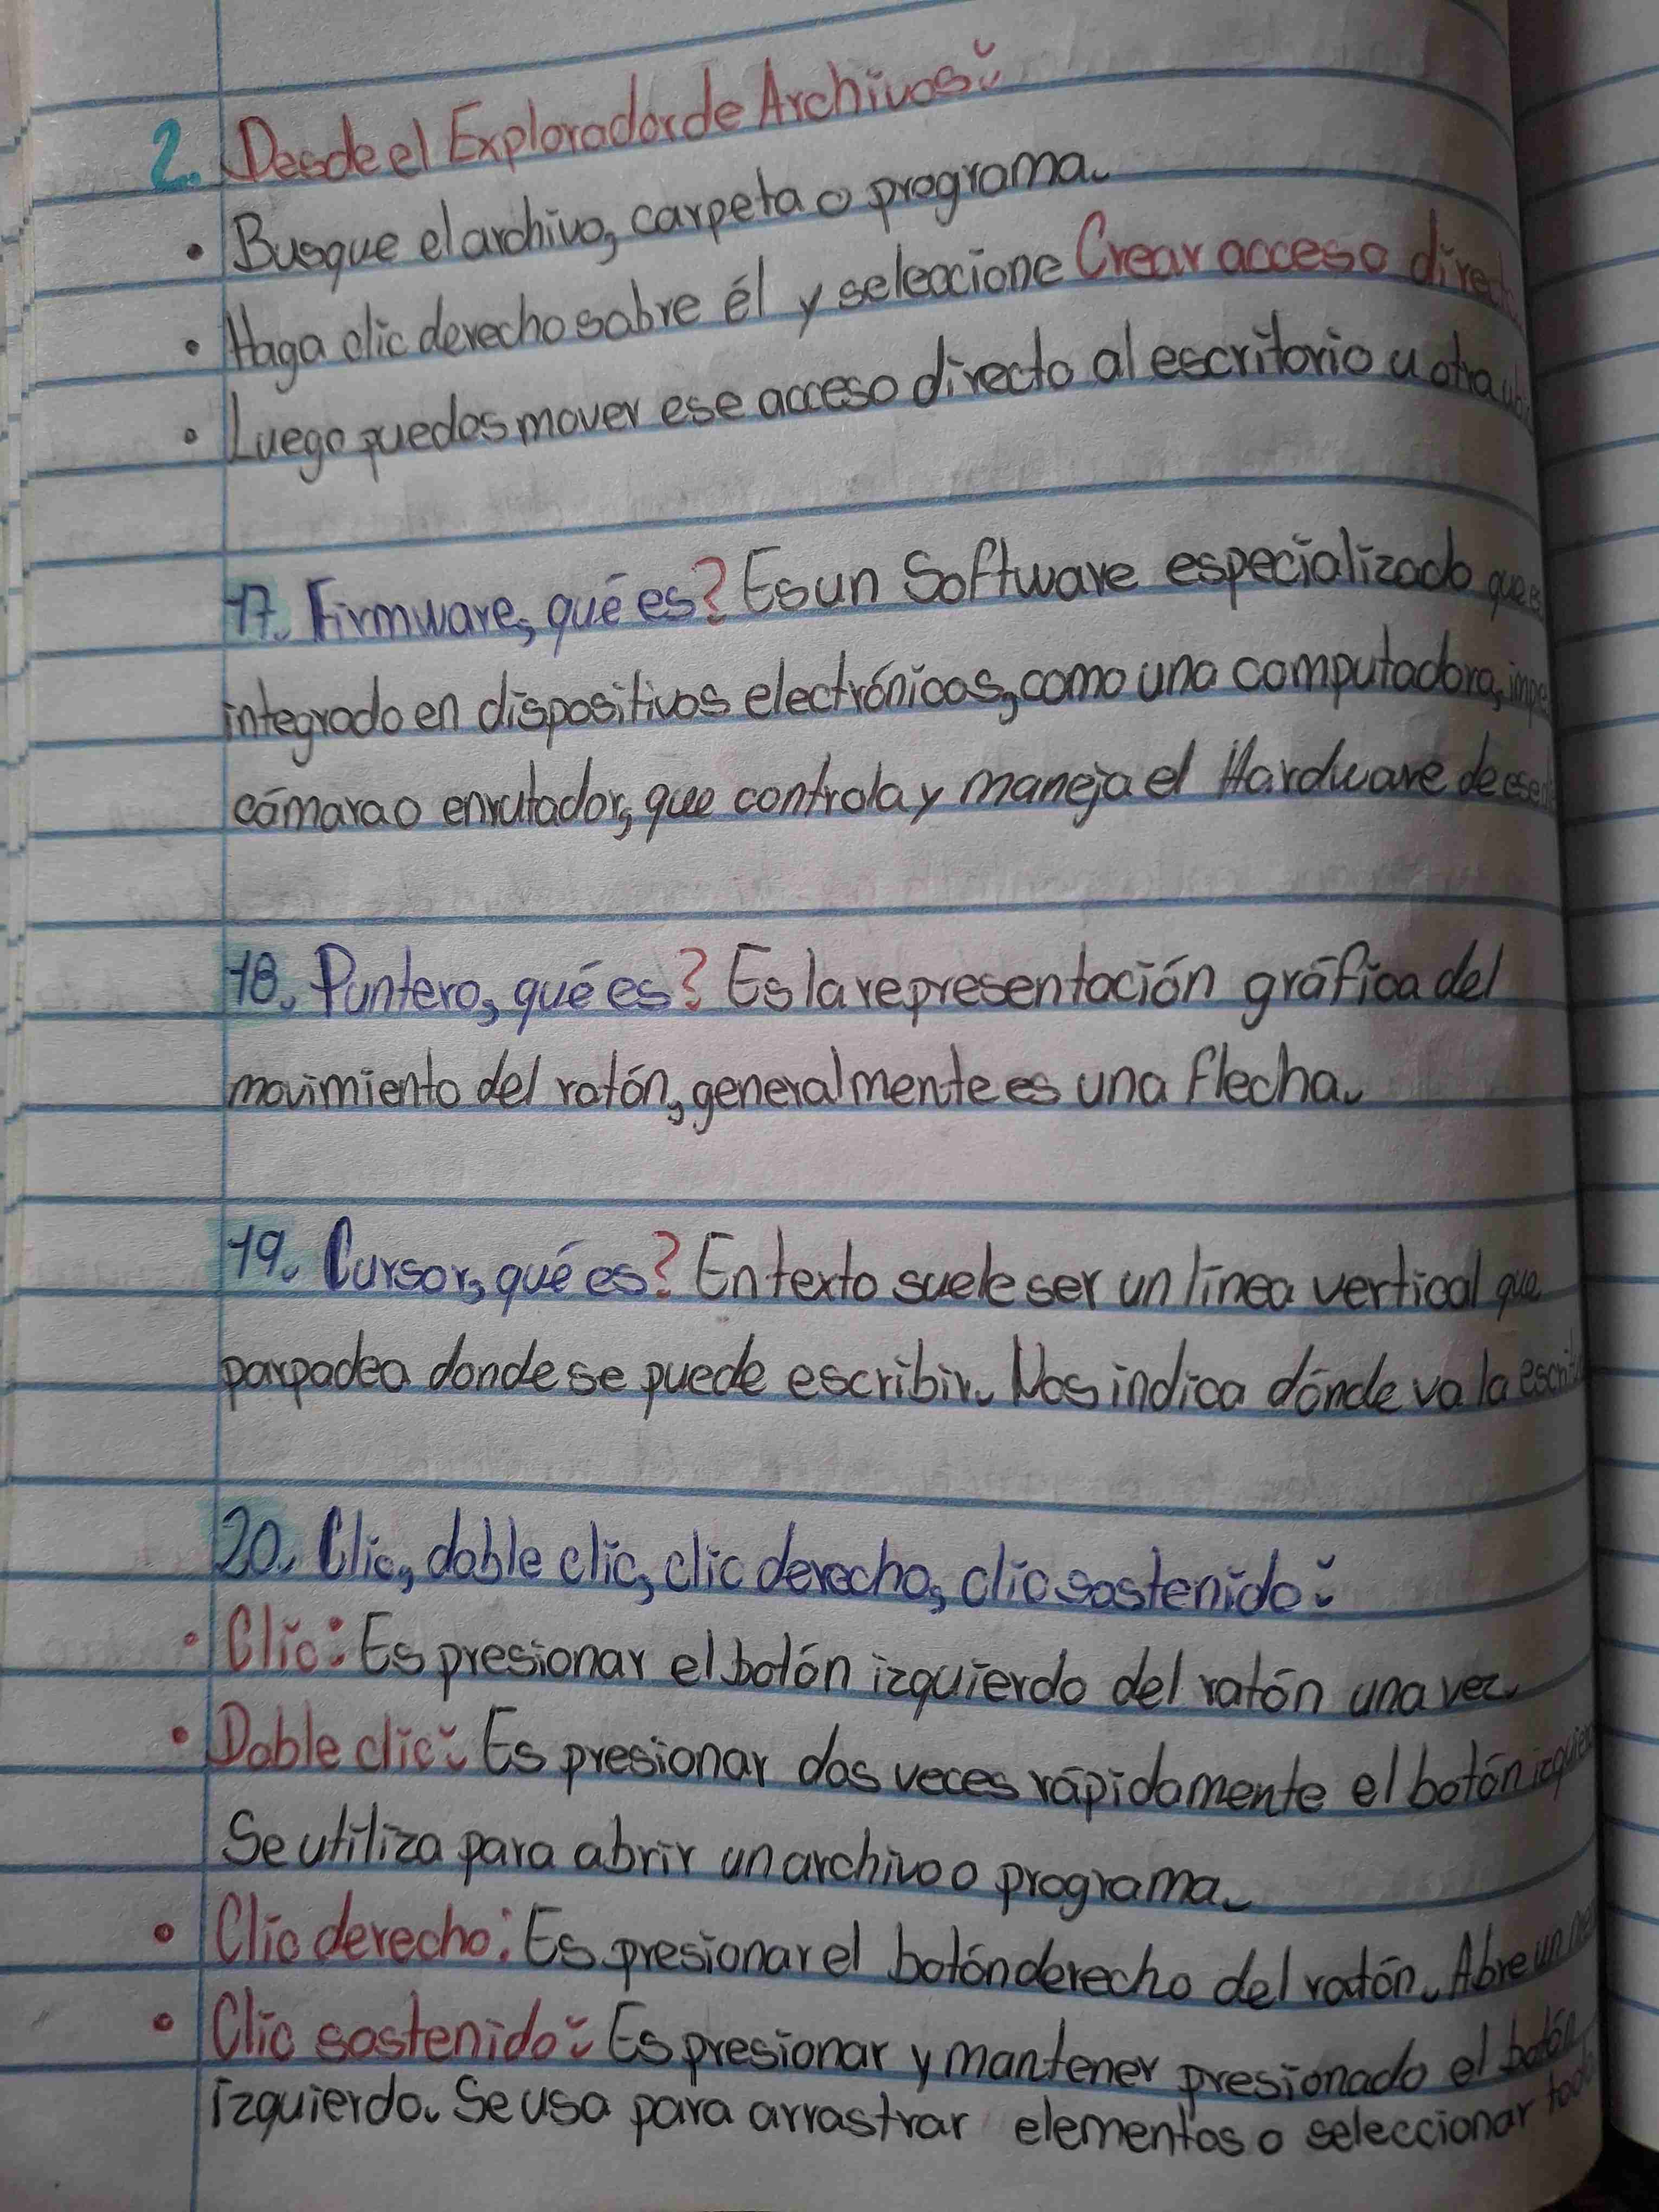 2. Desde el Explorador de Archivos:
• Busque el archivo, carpeta o programa.
• Haga clic derecho sobre él y seleccione Crear acceso
• Luego puedes mover ese acceso directo al escritorio u otra
17. Firmware, qué es? Es un Software especializado que
integrado en dispositivos electrónicos, como una computadora,
cámara o enrutador, que controla y maneja el Hardware de ese
18. Puntero, qué es? Es la representación gráfica del
movimiento del ratón, generalmente es una flecha.
19. Cursor, qué es? En texto suele ser un línea vertical que
parpadea donde se puede escribir. Nos indica dónde va la
20. Clic, doble clic, clic derecho, clic sostenido:
• Clic: Es presionar el botón izquierdo del ratón una vez.
• Doble clic: Es presionar dos veces rápidamente el botón
Se utiliza para abrir un archivo o programa.
• Clic derecho: Es presionar el botón derecho del ratón. Abre un
• Clic sostenido: Es presionar y mantener presionado el botón
izquierdo. Se usa para arrastrar elementos o seleccionar